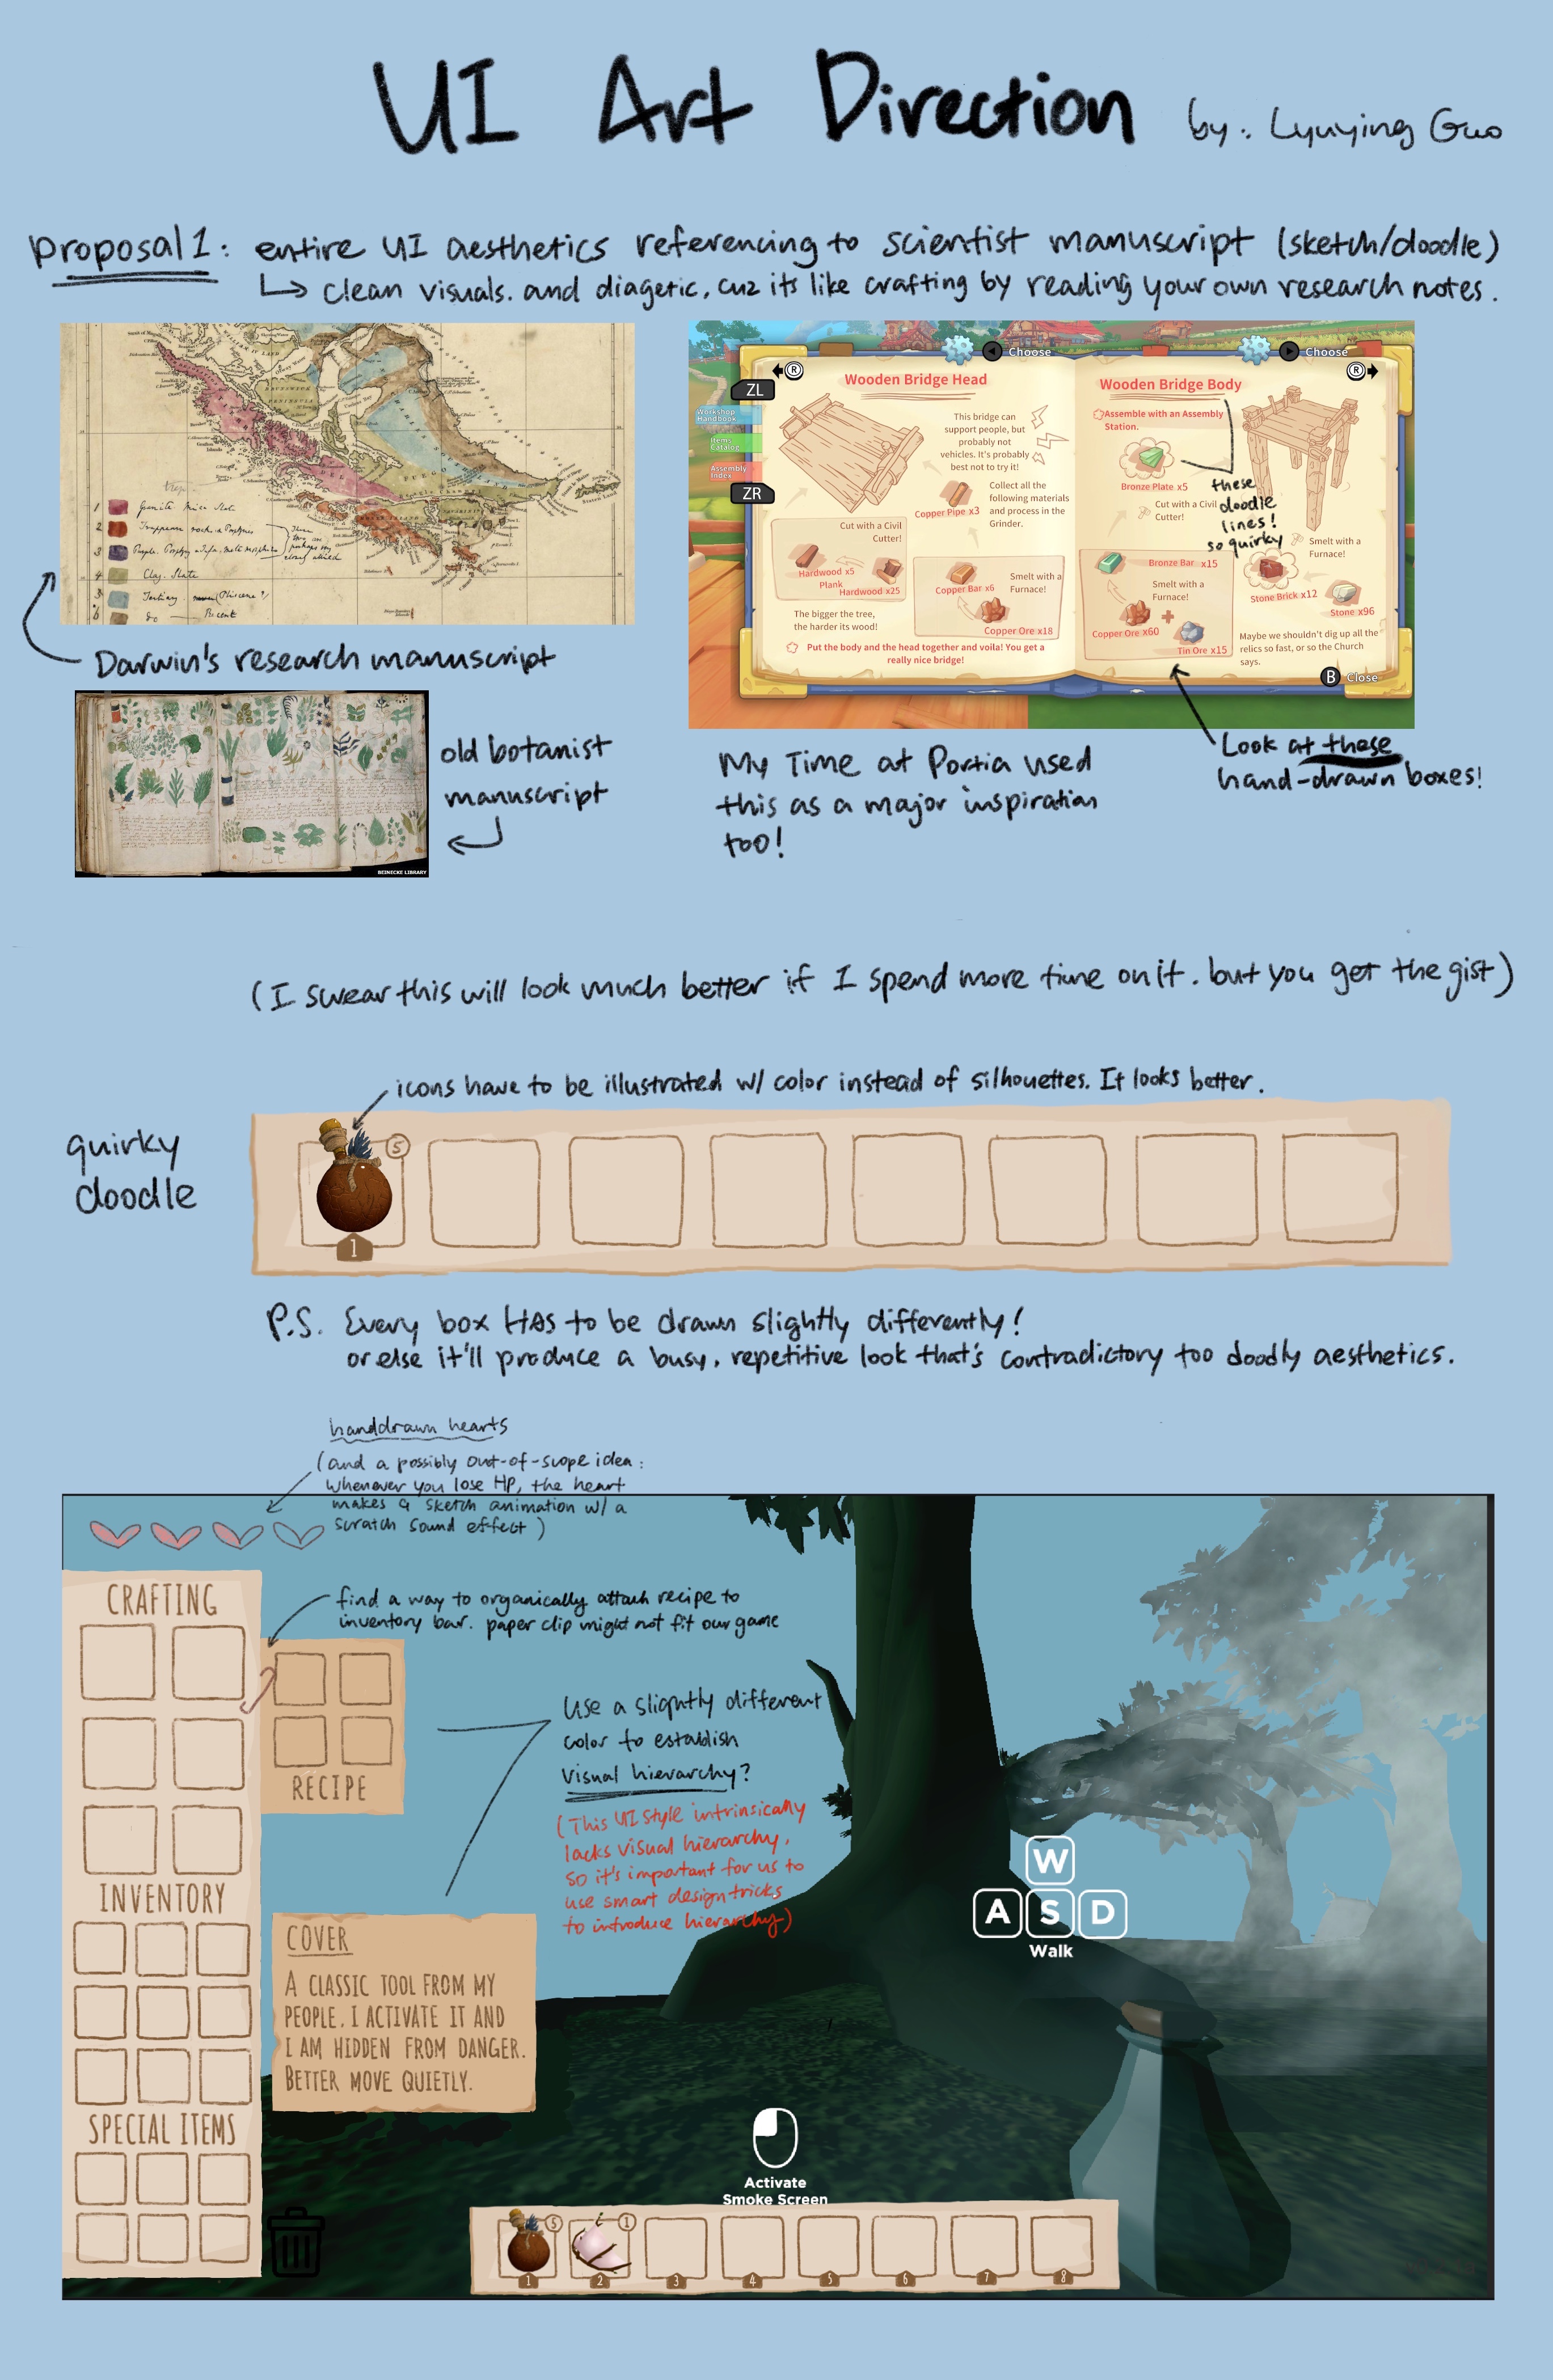 UI Art Direction by: Lyuying Guo
Proposal 1: entire UI aesthetics referencing to scientist manuscript (sketch/doodle)
↳ clean visuals. and diagetic, cuz its like crafting by reading your own research notes.
1 Granite Mica Slate
4 Clay. Slate
Darwin's research manuscript
BEINECKE LIBRARY
old botanist
manuscript
Choose
Choose
R
R
ZL
ZR
Workshop
Handbook
Items
Catalog
Assembly
Index
Wooden Bridge Head
This bridge can
support people, but
probably not
vehicles. It's probably
best not to try it!
Copper Pipe x3
Collect all the
following materials
and process in the
Grinder.
Cut with a Civil
Cutter!
Hardwood x5
Plank
Hardwood x25
Copper Bar x6
Smelt with a
Furnace!
Copper Ore x18
The bigger the tree,
the harder its wood!
Put the body and the head together and voila! You get a
really nice bridge!
Wooden Bridge Body
Assemble with an Assembly
Station.
Bronze Plate x5
Cut with a Civil
Cutter!
Bronze Bar x15
Smelt with a
Furnace!
Copper Ore x60
Tin Ore x15
Smelt with a
Furnace!
Stone Brick x12
Stone x96
Maybe we shouldn't dig up all the
relics so fast, or so the Church
says.
B Close
these
doodle
lines!
so quirky
My Time at Portia used
this as a major inspiration
too!
Look at these
hand-drawn boxes!
(I swear this will look much better if I spend more time on it. but you get the gist)
icons have to be illustrated w/ color instead of silhouettes. It looks better.
quirky
doodle
5
1
P.S. Every box HAS to be drawn slightly differently!
or else it'll produce a busy, repetitive look that's contradictory too doodly aesthetics.
handdrawn hearts
(and a possibly out-of-scope idea:
whenever you lose HP, the heart
makes a sketch animation w/ a
scratch sound effect)
CRAFTING
find a way to organically attach recipe to
inventory bar. paper clip might not fit our game
RECIPE
use a slightly different
color to establish
visual hierarchy?
(This UI style intrinsically
lacks visual hierarchy,
so it's important for us to
use smart design tricks
to introduce hierarchy)
INVENTORY
COVER
A CLASSIC TOOL FROM MY
PEOPLE. I ACTIVATE IT AND
I AM HIDDEN FROM DANGER.
BETTER MOVE QUIETLY.
SPECIAL ITEMS
W
A S D
Walk
Activate
Smoke Screen
5 1
1 2 3 4 5 6 7 8